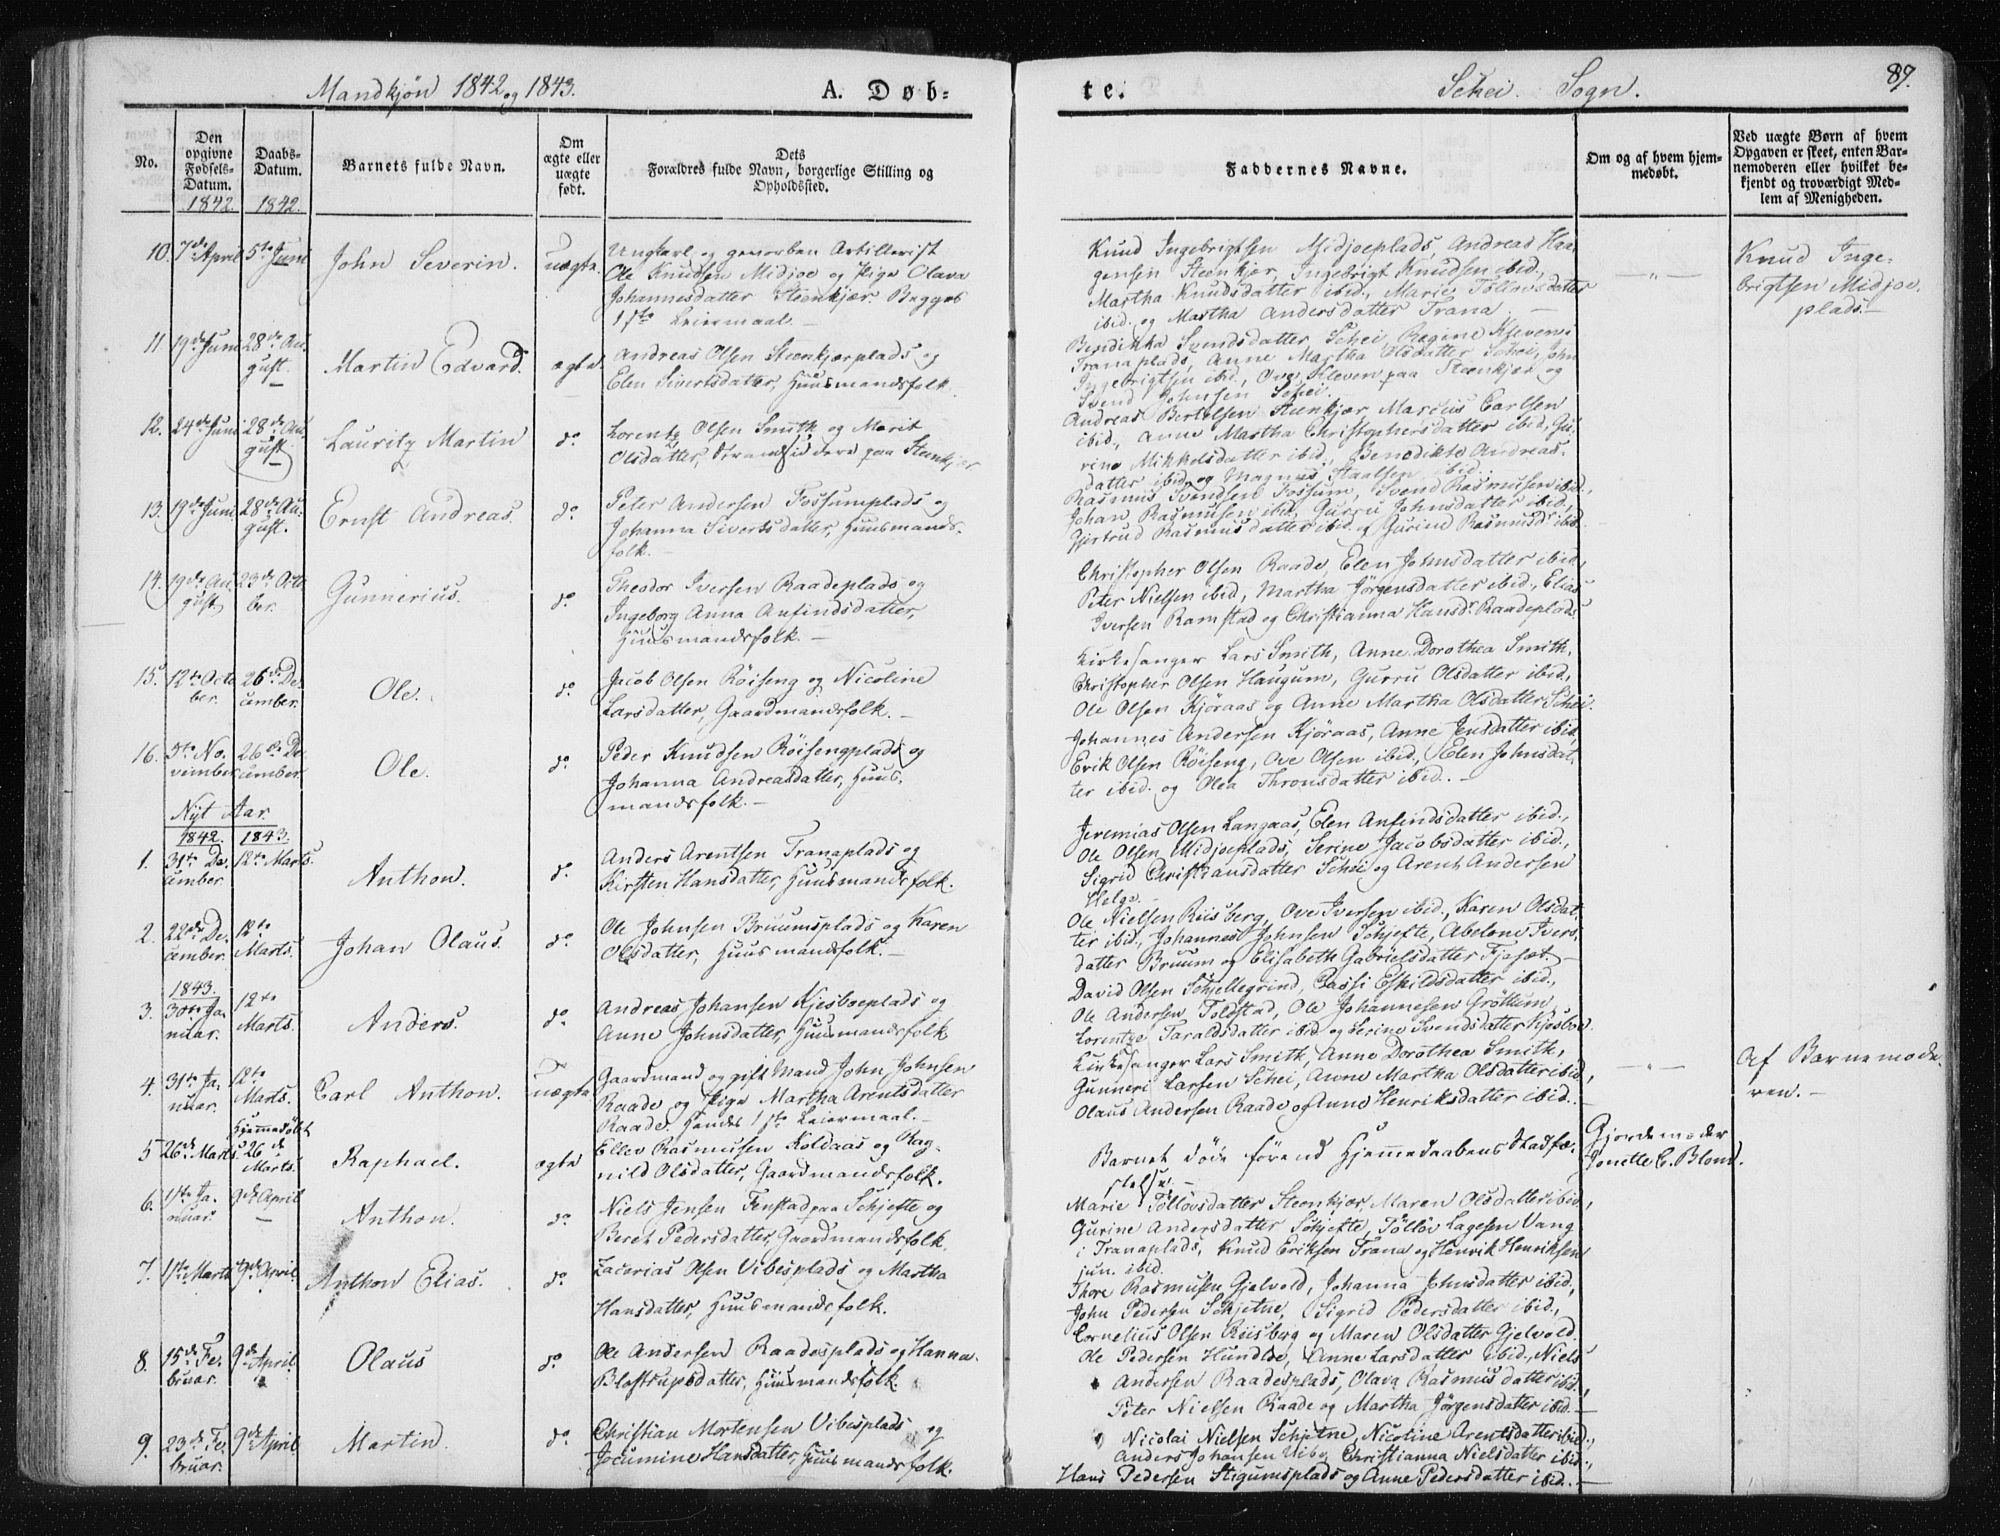 Mandkjøn 1842 og 1843.
A. Døb-
te.
Schei. Sogn.
89.
No.
Den opgivne Fødsels-Datum.
Daabs-Datum.
Barnets fulde Navn.
Om ægte eller uægte født.
Dets Forældres fulde Navn, borgerlige Stilling og Opholdssted.
Faddernes Navne.
Om og af hvem hjem-
medøbt.
Ved uægte Børn af hvem
Opgaven er skeet, enten Bar-
nemoderen eller hvilket be-
kjendt og troværdigt Med-
lem af Menigheden.
1842. 1842.
10. 7de April 5te Juni John Severin. Uægte.
Ungkarl og gevorben Artillerist
Ole Knudsen Midjoe og Pige Olava
Johannesdatter Steenkjær Begges
1ste Leiermaal. —
Knud Ingebrigtsen Midjoeplads, Andreas Haa-
gensen Steenkjær, Ingebrigt Knudsen ibid.,
Martha Knudsdatter ibid., Marie Töllevsdatter
ibid. og Martha Andersdatter Trana —
—„—
Knud Inge-
brigtsen Midjoe-
plads. —
11. 19de Juni 28de Au-
gust. Martin Edvard. ægte.
Andreas Olsen Steenkjærplads og
Elen Sivertsdatter, Huusmandsfolk.
Bendikka Svendsdatter Schei, Regine Kleven
Tranaplads, Anne Martha Olsdatter Schei, John
Ingebrigtsen ibid., Ove Kleven paa Steenkjær og
Svend Johnsen Schei.
12. 24de Juni 28de Au-
gust. Lauritz Martin do.
Lorentz Olsen Smith og Marit
Olsdatter, Strandsiddere paa Steenkjær
Andreas Bertelsen Steenkjær, Marcus Carlsen
ibid., Anne Martha Christophersdatter ibid., Gu-
rine Mikkelsdatter ibid., Benedikte Andreas-
datter ibid. og Magnus Staalsen ibid.
13. 19de Juni 28de Au-
gust. Ernst Andreas. do.
Peter Andersen Fossumplads og
Johanna Sivertsdatter, Huusmands-
folk. —
Rasmus Svendsen Fossum, Svend Rasmusen ibid.,
Johan Rasmusen ibid., Gurru Johnsdatter ibid.,
Gjertrud Rasmusdatter ibid. og Gurine Rasmusdr ibid.
14. 19de Au-
gust. 23de Octo-
ber. Gunnerius. do.
Theodor Iversen Raadeplads og
Ingeborg Anna Anfindsdatter,
Huusmandsfolk. —
Christopher Olsen Raade, Elen Johnsdatter ibid.,
Peter Nielsen ibid, Martha Jörgensdatter ibid., Elias
Iversen Ramstad og Christianna Hansdr. Raadeplads.
15. 12te Octo-
ber. 26de De-
cember. Ole. do.
Jacob Olsen Röiseng og Nicoline
Larsdatter, Gaardmandsfolk. —
Kirkesanger Lars Smith, Anne Dorothea Smith,
Christopher Olsen Haugum, Gurru Olsdatter ibid.,
Ole Olsen Kjöraas og Anne Martha Olsdatter Schei.
16. 5te No-
vember 26de De-
cember. Ole. do.
Peder Knudsen Röisengplads og
Johanna Andreasdatter, Huus-
mandsfolk. —
Johannes Andersen Kjöraas, Anne Jensdatter ibid.
Erik Olsen Röiseng, Ove Olsen ibid., Elen Johnsdat-
ter ibid. og Olea Thronsdatter ibid. —
Nyt Aar.
1842. 1843.
1. 31te De-
cember. 12te Marts. Anthon. do.
Anders Arentsen Tranaplads og
Kirsten Hansdatter, Huusmandsfolk.
Jeremias Olsen Langaas, Elen Anfindsdatter ibid.,
Ole Olsen Midjoeplads, Serine Jacobsdatter ibid.,
Sigrid Christiansdatter Schei og Arent Andersen
Helge. —
2. 22de De-
cember. 12te
Marts. Johan Olaus. do.
Ole Johnsen Bruumsplads og Karen
Olsdatter, Huusmandsfolk. —
Ole Nielsen Riisberg, Ove Iversen ibid., Karen Olsdat-
ter ibid., Johannes Johnsen Schjefte, Abelone Ivers-
datter Bruum og Elisabeth Gabrielsdatter Fjeset. —
1843.
3. 30te Ja-
nuar. 12te
Marts. Anders. do.
Andreas Johansen Kjesboeplads og
Anne Johnsdatter, Huusmandsfolk
David Olsen Schjellegrind, Eskildsdatter ibid.,
Ole Andersen Foldstad, Ole Johannesen Gröttem,
Lorentze Taraldsdatter ibid. og Serine Svendsdatter Kjesboe.
4. 31te Ja-
nuar. 12te
Marts. Carl Anthon. Uægte
Gaardmand og gift Mand John Johnsen
Raade og Pige Martha Arentsdatter
Raade. Hendes 1ste Leiermaal. —
Kirkesanger Lars Smith, Anne Dorothea Smith,
Gunneri Larsen Schei, Anne Martha Olsdatter ibid.,
Olaus Andersen Raade og Anne Henriksdatter ibid. —
—„—
Af Barnemode-
ren. —
5 26de Marts. Hjemmedöbt
26de
Marts. Raphael. ægte
Ellev Rasmusen Koldaas og Rag-
nild Olsdatter, Gaardmandsfolk.
Barnet döde förend Hjemmedaabens Stadfæ-
stelse. —
Gjordemoder
Jonette C. Blom.
6. 1ste Ja-
nuar. 9de April
— Anthon. do.
Niels Jensen Fenstad paa Schjefte og
Beret Pedersdatter, Gaardmandsfolk.
Marie Töllövsdatter Steenkjær, Maren Olsdatter ibid.,
Gurine Andersdatter Schjefte, Töllöv Lagesen Vang
i Tranaplads, Knud Eriksen Trana og Henrik Henriksen
jun. ibid.
7. 1ste Marts 9de April Anthon Elias. do.
Zacarias Olsen Vibesplads og Martha
Hansdatter, Huusmandsfolk.
Thore Rasmusen Gjelvold, Johanna Johnsdatter ibid.,
John Pedersen Schjetne, Sigrid Pedersdatter ibid.,
Cornelius Olsen Riisberg og Maren Olsdatter Gjelvold.
8. 15de Fe-
bruar. 9de April. Olaus do.
Ole Andersen Raadesplads og Hanna
Blostrupsdatter, Huusmandsfolk.
Ole Pedersen Hundlde, Anne Larsdatter ibid., Niels
Andersen Raadesplads, Olava Rasmusdatter ibid.,
Peter Nielsen Raade og Martha Jörgensdatter ibid. —
9. 23de Fe-
bruar. 9de April Martin. do.
Christian Mortensen Vibesplads og
Jocumine Hansdatter, Huusmandsfolk.
Nicolai Nielsen Schjetne, Nicoline Arentsdatter ibid.,
Anders Johansen Vibe, Christianna Nielsdatter ibid.,
Hans Pedersen Stigumsplads og Anne Pedersdatter ibid. —